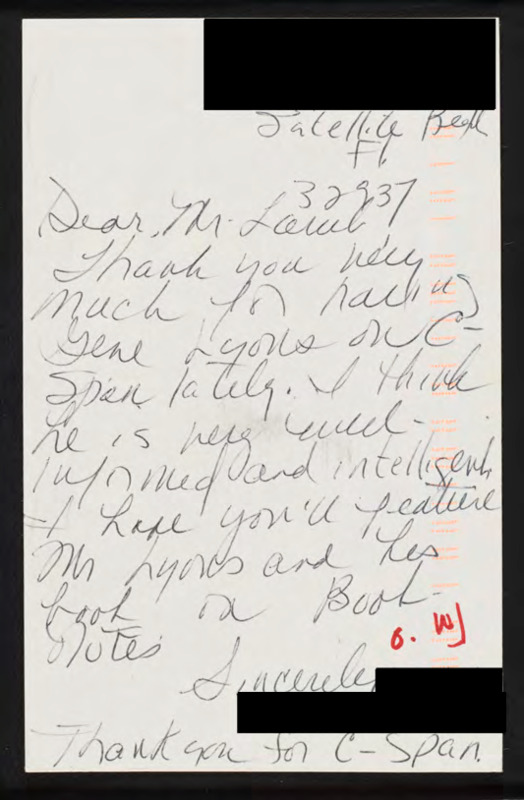 Satellite Beach
Fl
32937
Dear, Mr. Lamb
Thank you very
much for having
Gene Lyons on C-
Span lately. I think
he is very well-
informed and intelligent
I hope you'll feature
Mr Lyons and his
book on Book-
Notes
Sincerely
Thank you for C-Span.